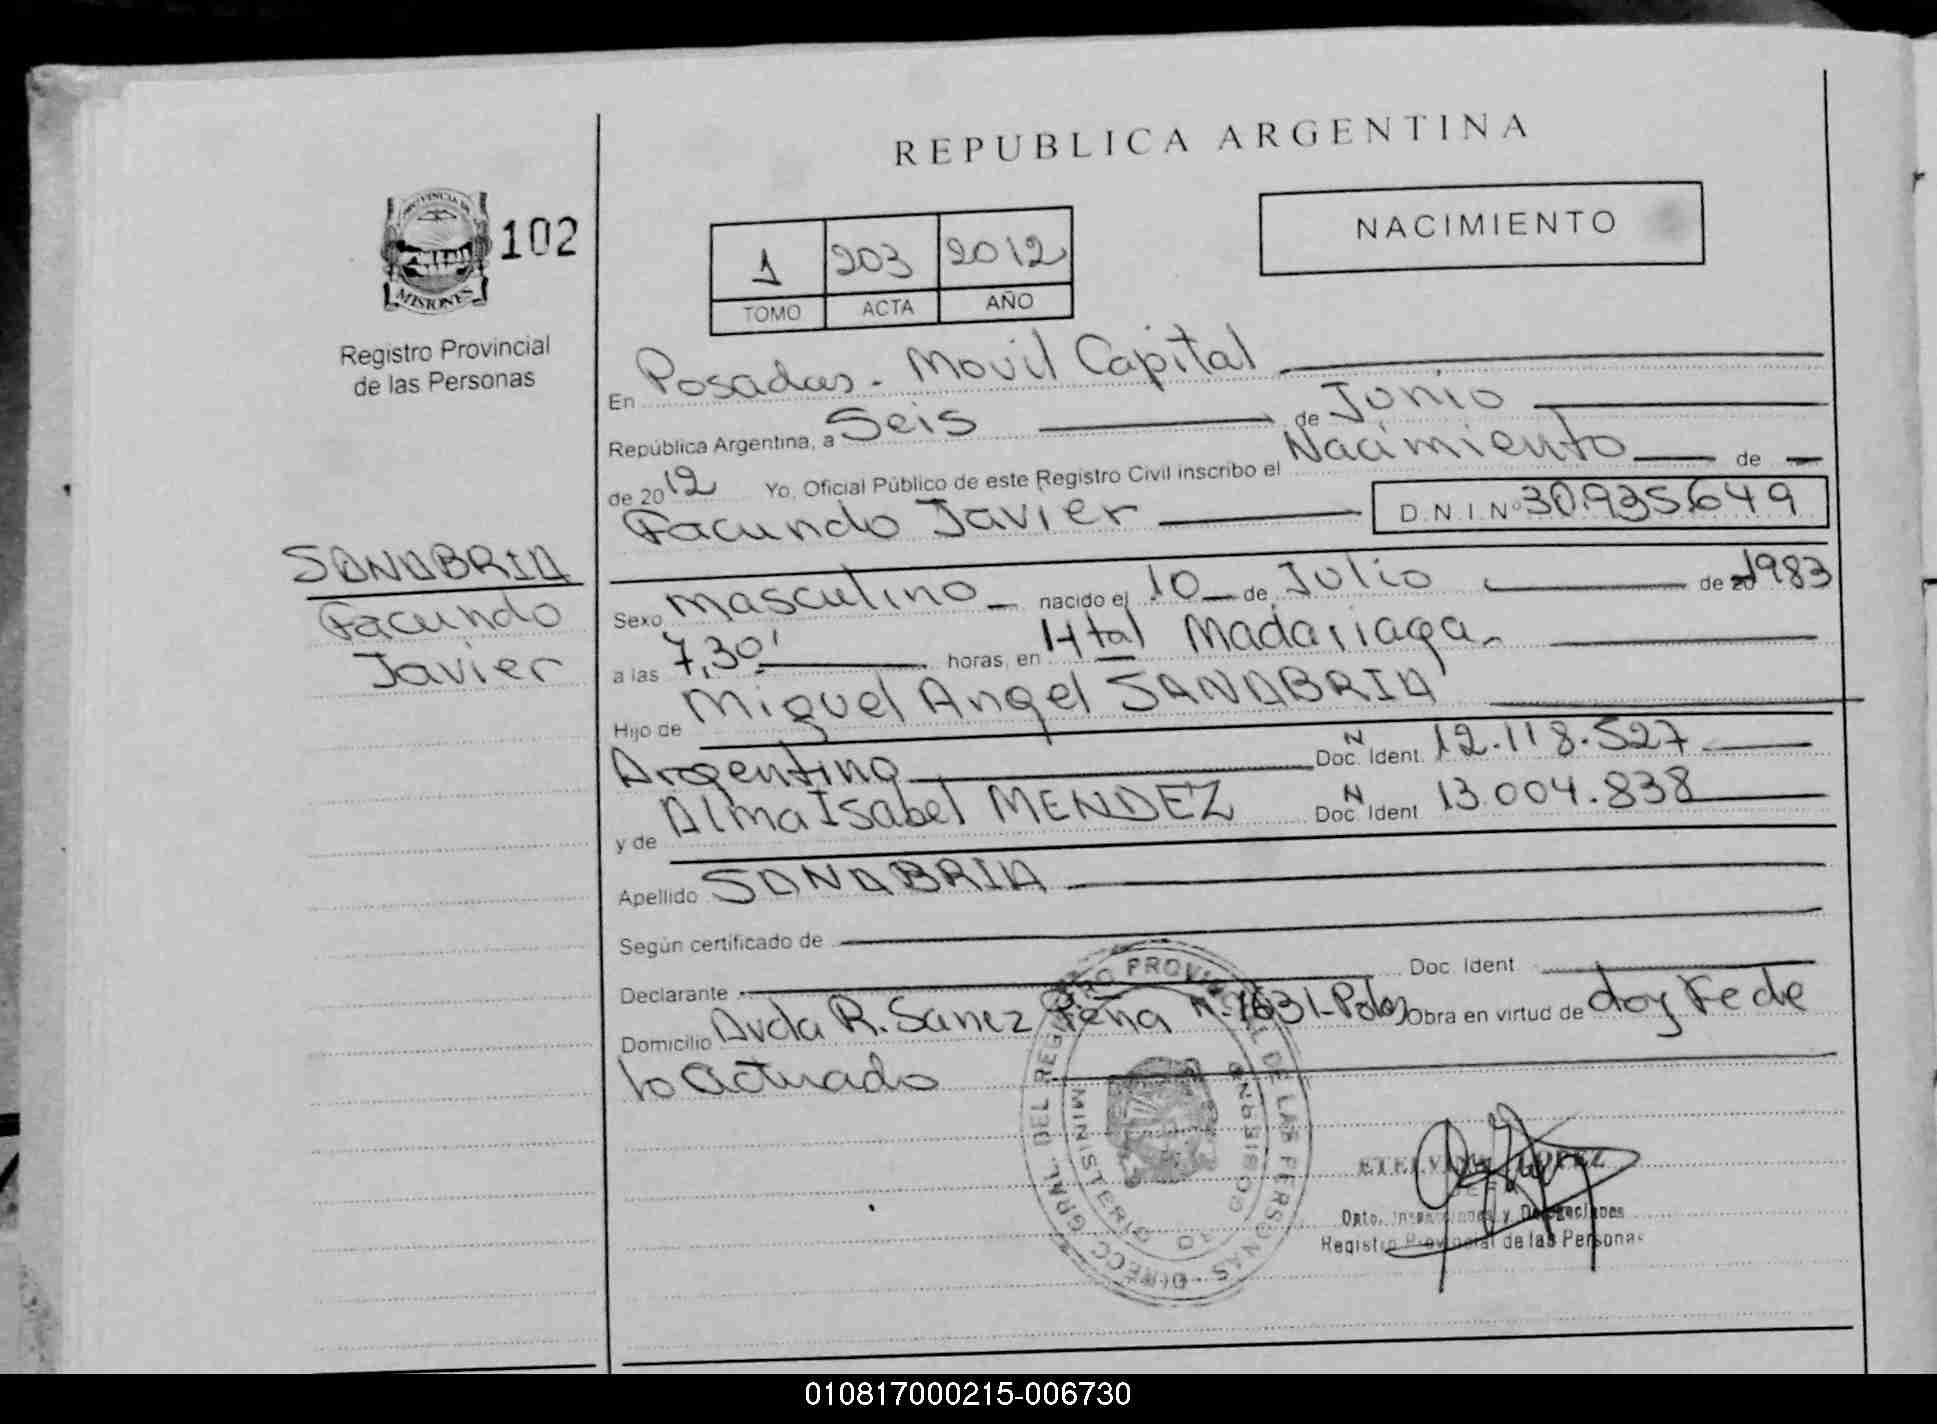 REPUBLICA ARGENTINA
PROVINCIA DE
MISIONES
102
Registro Provincial
de las Personas
1 203 2012
TOMO ACTA AÑO
NACIMIENTO
En Posadas - Movil Capital
República Argentina, a Seis de Junio
de 2012 Yo, Oficial Público de este Registro Civil inscribo el Nacimiento de
Facundo Javier D.N.I.Nº 30.935.649
SANABRIA
Facundo
Javier
Sexo masculino nacido el 10 de Julio de 1983
a las 7,30' horas, en Htal Madariaga
Hijo de Miguel Angel SANABRIA
Argentino Doc. Ident. N 12.118.527
y de Alma Isabel MENDEZ Doc. Ident N 13.004.838
Apellido SANABRIA
Según certificado de
Declarante Doc. Ident
Domicilio Avda R. Sanez Peña Nº 1631- Obra en virtud de doy Fe de
lo actuado
DIRECC. GRAL. DEL REGISTRO PROVINCIAL DE LAS PERSONAS
MINISTERIO DE GOBIERNO
LOPEZ
JEFA
Dpto. Inspecciones y Delegaciones
Registro Provincial de las Personas
010817000215-006730